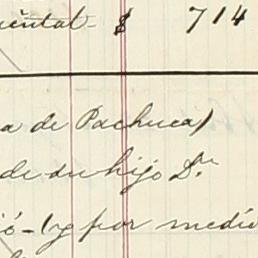 uental $ 714
a de Pachuca)
de su hijo Dn
ió - y por medio